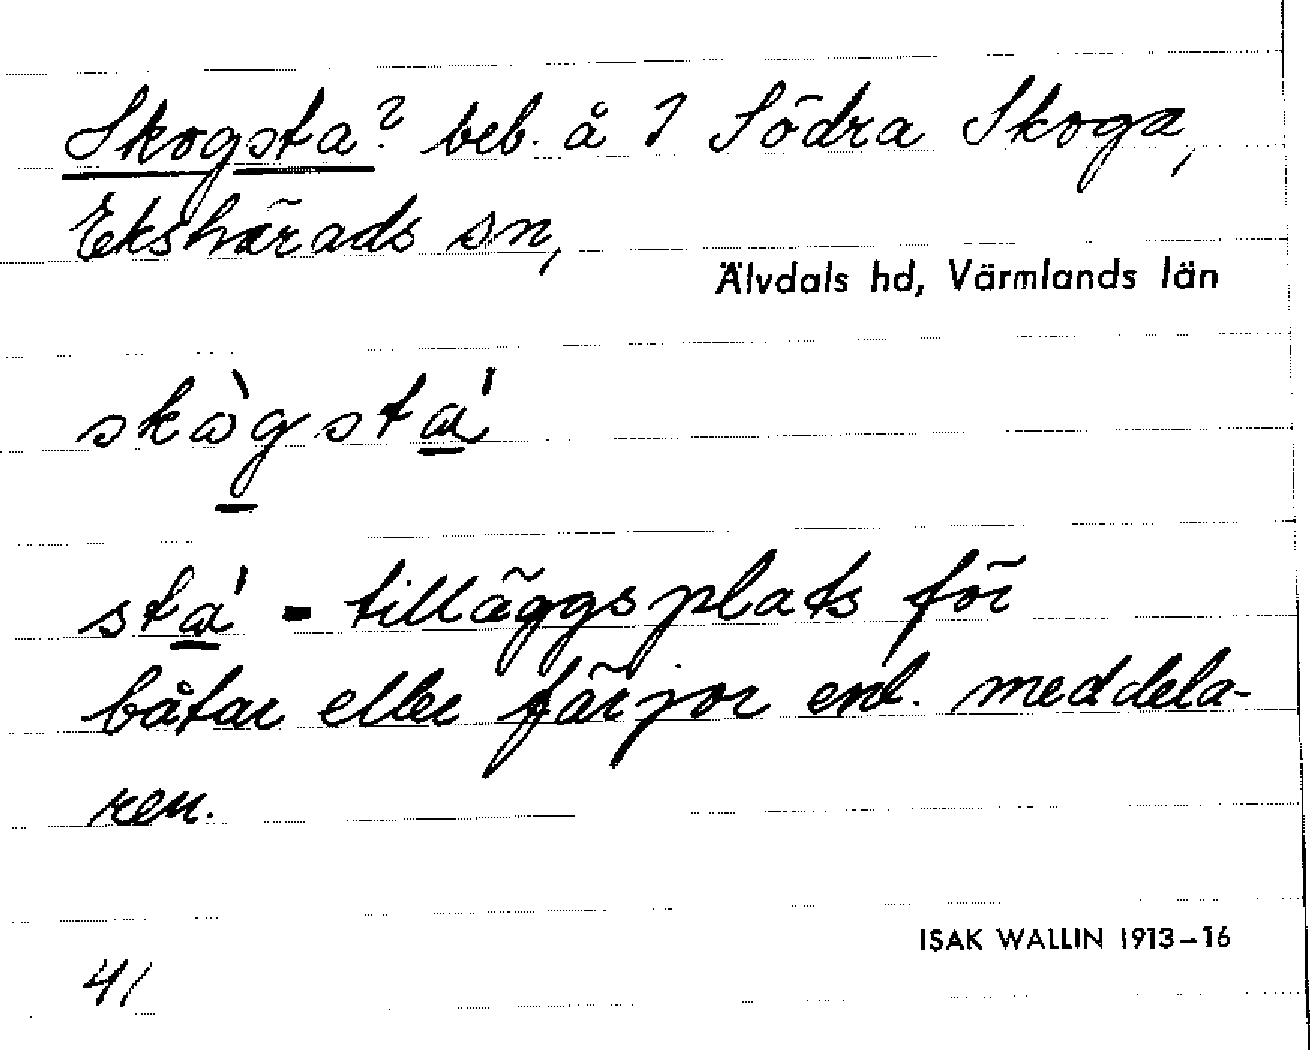 Skogsta? beb. å 1 Södra Skoga,
Ekshärads sn,
Älvdals hd, Värmlands län
skògstá
stá = tilläggsplats för
båtar eller färjor enl. meddela-
ren.
ISAK WALLIN 1913-16
41